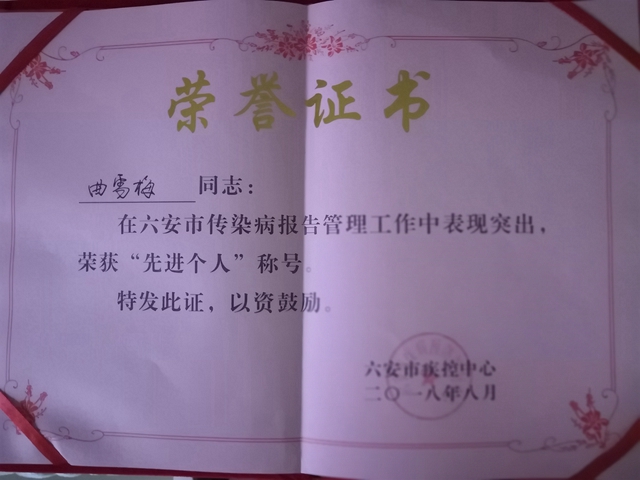 荣誉证书
曲雪梅 同志：
在六安市传染病报告管理工作中表现突出，
荣获“先进个人”称号。
特发此证，以资鼓励。
六安市疾控中心
二〇一八年八月